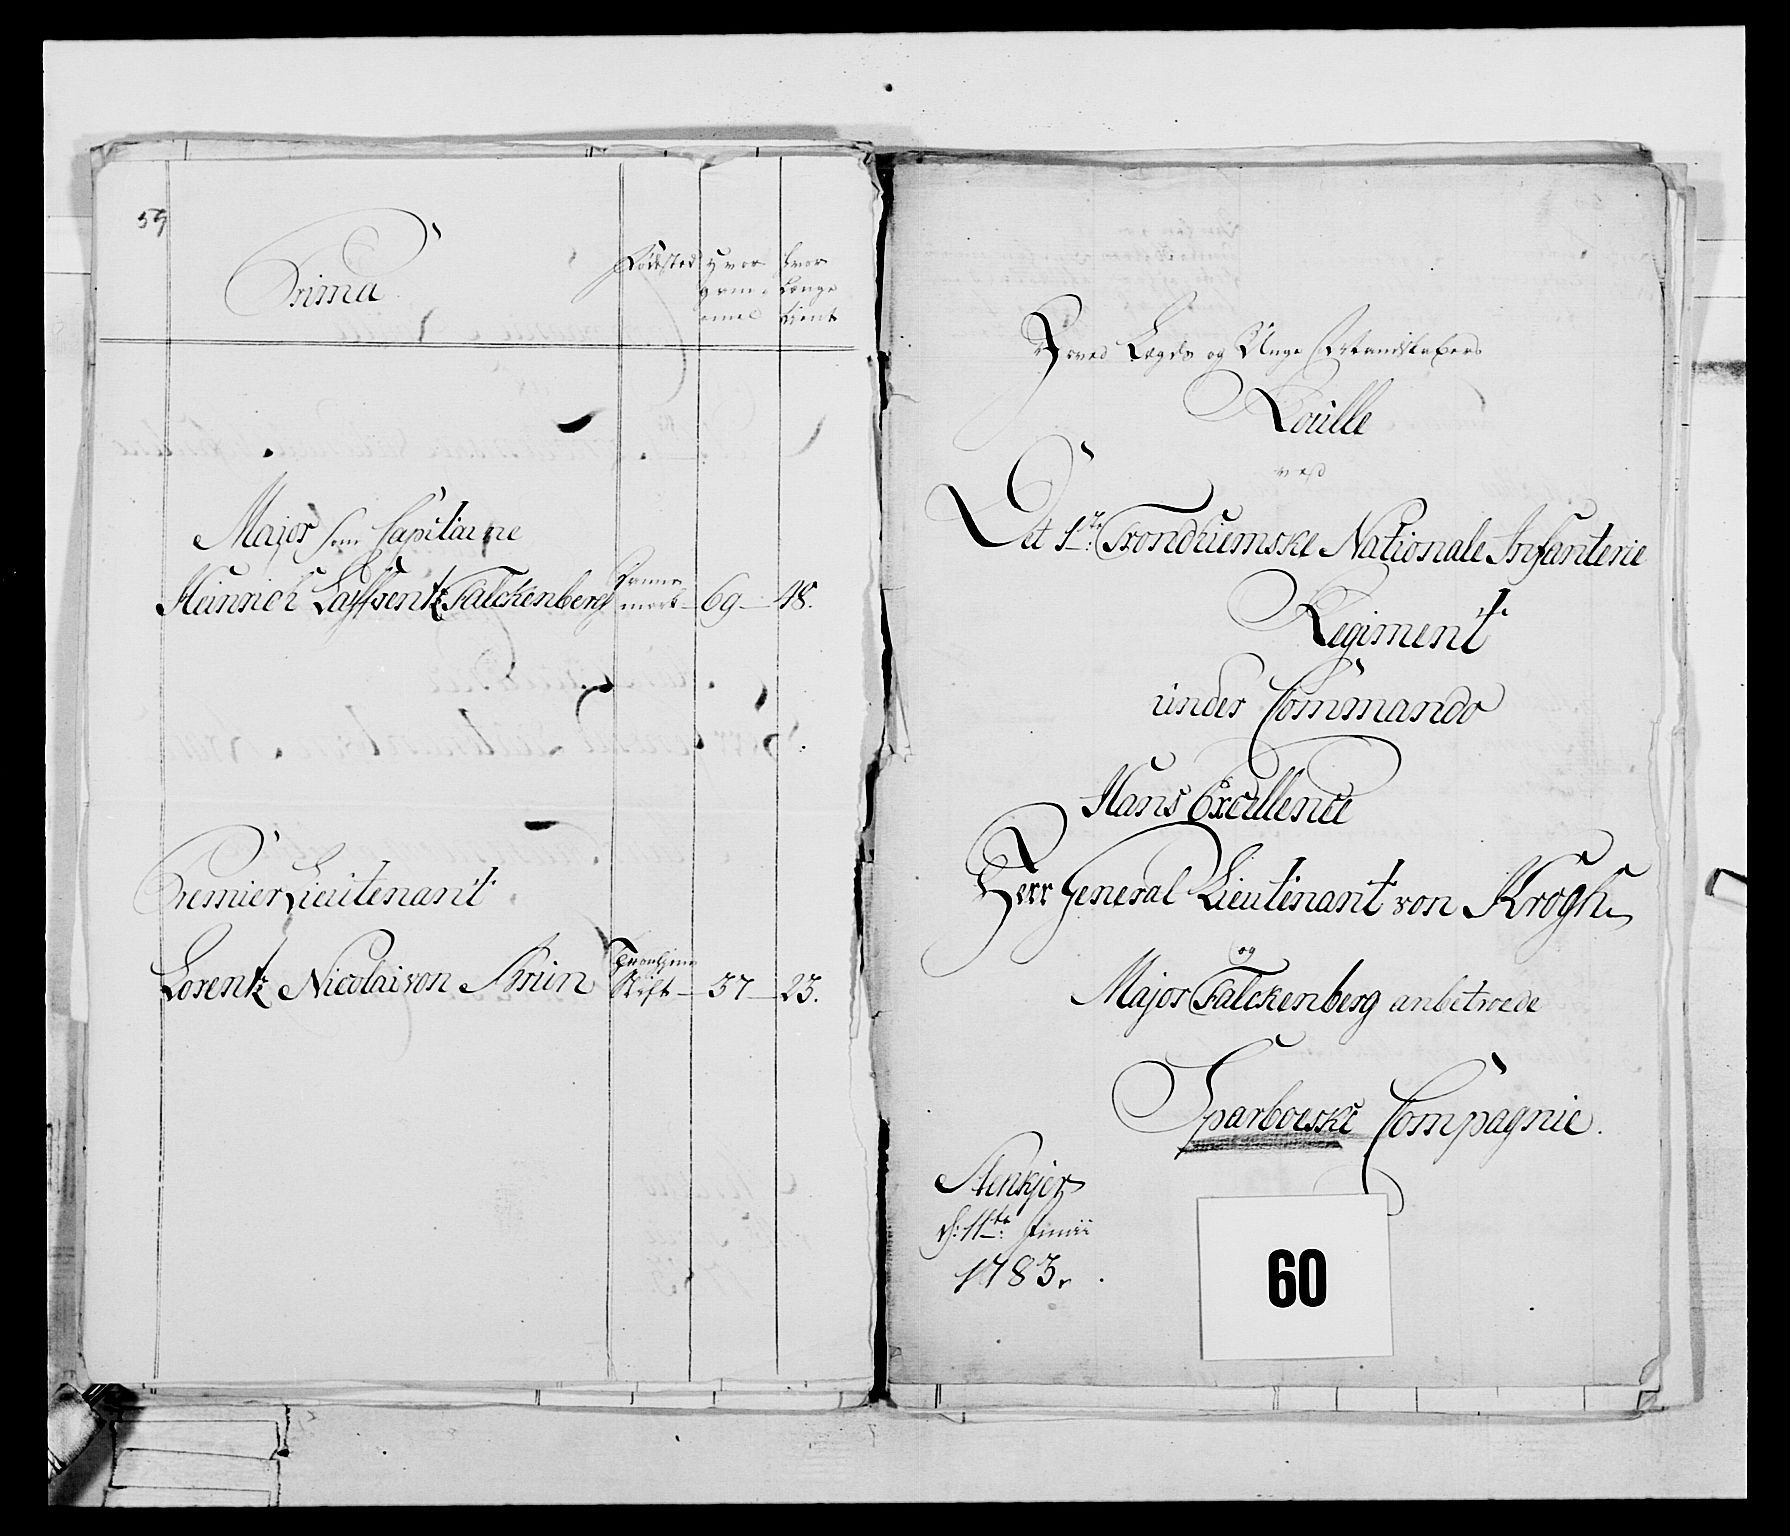 59
Prima
Fødested
Hvor
gam-
mel
hvor
Længe
tient
Major som Capitaine
Heinrich Laffrentz Falckenberg
Danne
mark
69
48.
Premier Lieutenant
Lorentz Nicolai von Krün
Tronhjems
Stift
37
23.
Hoved Lægds og Unge Mandskabers
Roulle
ved
Det 1te Trondhiemske Nationale Infanterie
Regiment
under Commando
Hans Excellence
Herr General Lieutenant von Krogh
og
Major Falckenberg anbetroede
Sparboeske Compagnie.
Stenkjer
d: 11te Junii
1783.
60